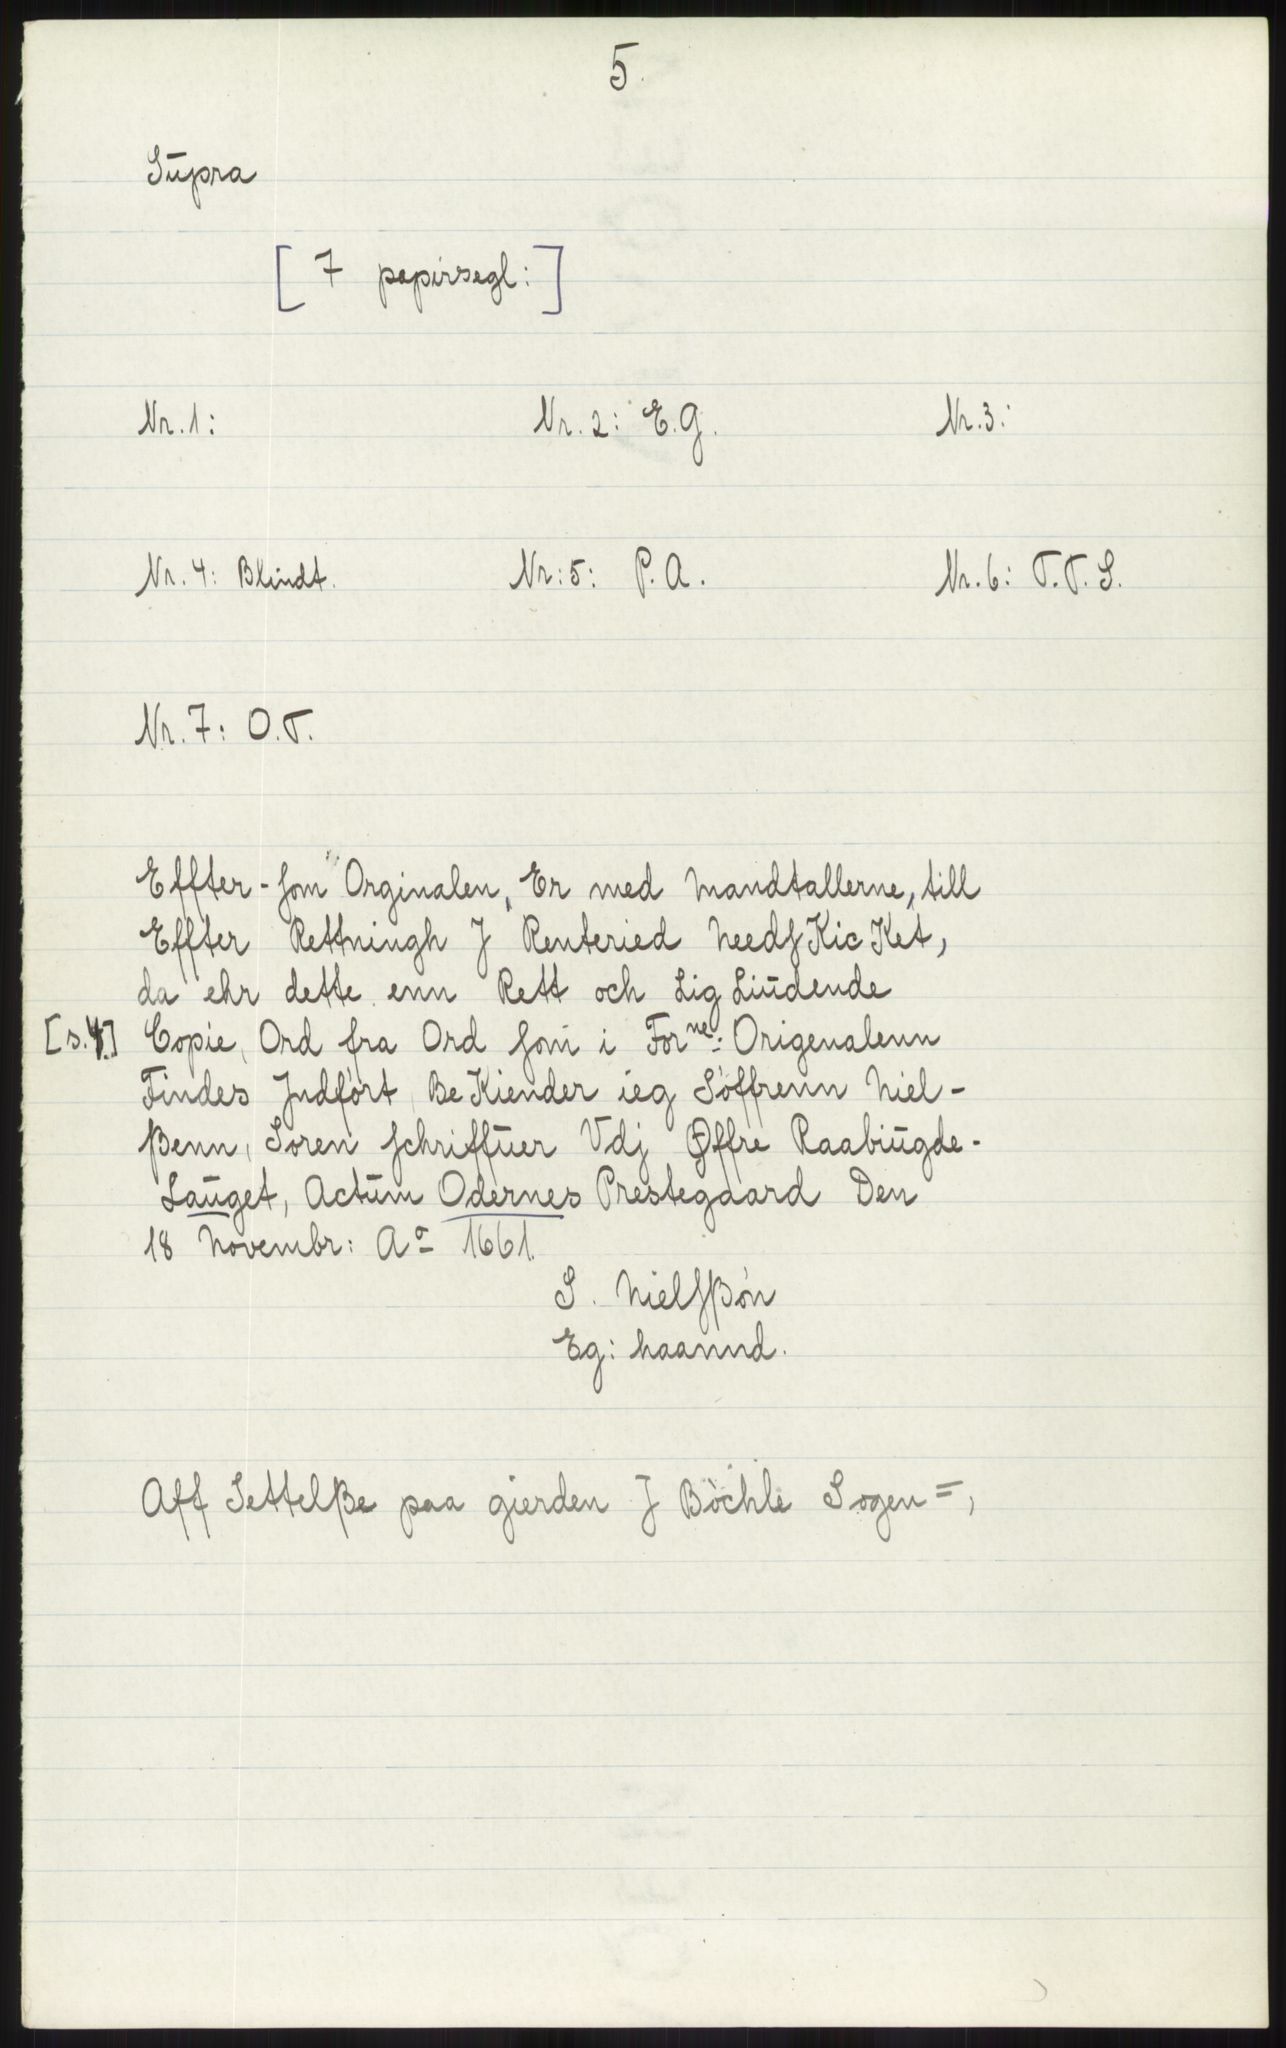 5.
Sūpra
[ 7 papirsegl: ]
Nr. 1: Nr. 2: E.G. Nr. 3:
Nr. 4: Blindt. Nr: 5: P. A. Nr. 6: T. T. S.
Nr. 7: O. T.
Effter-som Orginalen, Er med Mandtallerne, till
Effter Rettningh J Renteried NeedsKicKet,
da ehr dette enn Rett och Lig Liūdende
[s.4.] Copie, Ord fra Ord som i For ne: Origenalenn
Findes Jndfört, BeKiender ieg Söffrenn Niel-
ßenn, Soren schriffūer Vdj Øffre Raabiūgde-
Laūget, Actūm Odernes Prestegaard Den
18 Novembr: Ao 1661.
S. Nielsßön
Eg: haannd.
Aff Settelße paa gierden J Böchle Sogen =,